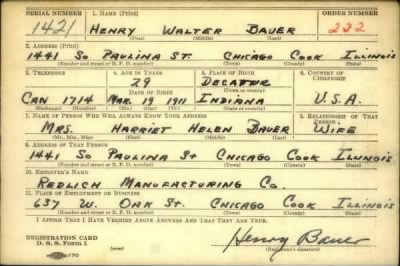 SERIAL NUMBER 1. NAME (Print) ORDER NUMBER
1421 HENRY WALTER BAUER 222
(First) (Middle) (Last)
2. ADDRESS (Print)
1441 SO PAULINA ST. CHICAGO COOK ILLINOIS
(Number and street or R. F. D. number) (Town) (County) (State)
3. TELEPHONE 4. AGE IN YEARS 5. PLACE OF BIRTH 6. COUNTRY OF CITIZENSHIP
29 DECATUR
DATE OF BIRTH (Town or county)
CAN 1714 MAR. 19 1911 INDIANA U.S.A.
(Exchange) (Number) (Mo.) (Day) (Yr.) (State or country)
7. NAME OF PERSON WHO WILL ALWAYS KNOW YOUR ADDRESS 8. RELATIONSHIP OF THAT PERSON
MRS. HARRIET HELEN BAUER WIFE
(Mr., Mrs., Miss) (First) (Middle) (Last)
9. ADDRESS OF THAT PERSON
1441 SO PAULINA ST CHICAGO COOK ILLINOIS
(Number and street or R. F. D. number) (Town) (County) (State)
10. EMPLOYER'S NAME
REDLICH MANUFACTURING CO.
11. PLACE OF EMPLOYMENT OR BUSINESS
637 W. OAK ST. CHICAGO COOK ILLINOIS
(Number and street or R. F. D. number) (Town) (County) (State)
I AFFIRM THAT I HAVE VERIFIED ABOVE ANSWERS AND THAT THEY ARE TRUE.
REGISTRATION CARD
D. S. S. Form 1 Henry Bauer
(Registrant's signature)